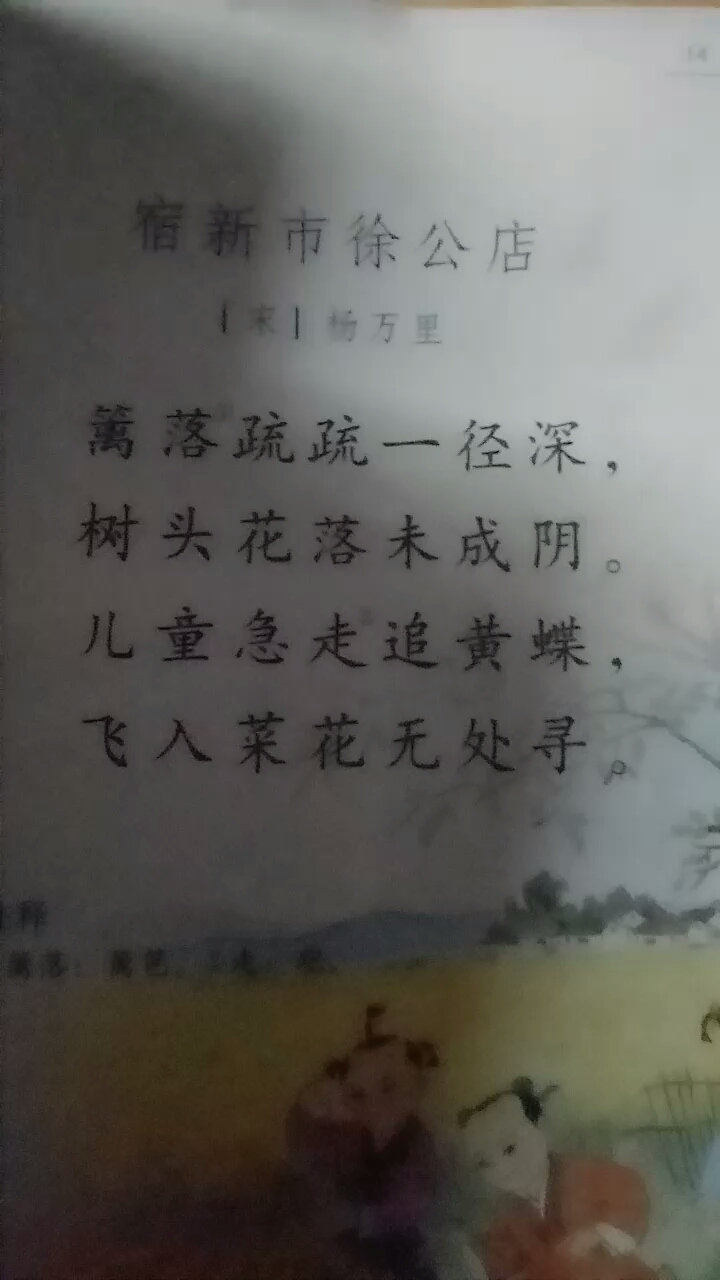 14
宿新市徐公店
[宋] 杨万里
篱落疏疏一径深，
树头花落未成阴。
儿童急走追黄蝶，
飞入菜花无处寻。
释
篱落：篱笆。